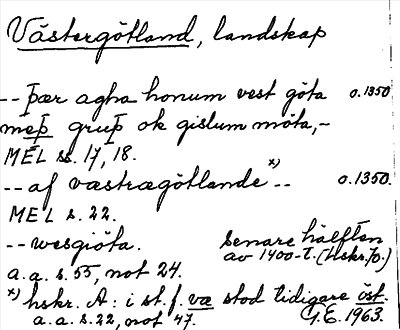 Västergötland, landskap
-- Þær agha honum vest göta o.1350
meþ grup ok gislum möta,-
MEL ss. 17, 18.
-- af væstrægötlande x) -- o.1350.
MEL s. 22.
-- wesgiöta. senare hälften
a.a. s. 55, not 24. av 1400-t. (Hskr.Jb.)
x) hskr. A: i st. f. væ stod tidigare öst.
a.a. s. 22, not 47. G.E. 1963.